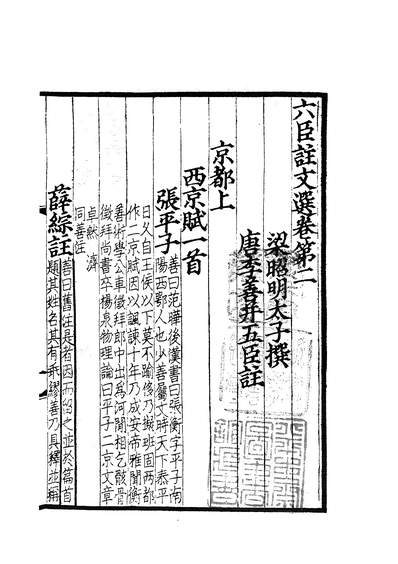 六臣註文選卷第二
梁昭明太子撰
唐李善并五臣註
京都上
西京賦一首
張平子
善曰范曄後漢書曰張衡字平子南
陽西鄂人也少善屬文時天下太平
日久自王侯以下莫不踰侈乃擬班固兩都
作二京賦因以諷諫十年乃成安帝雅聞衡
善術學公車徵拜郎中出為河間相乞骸骨
徵拜尚書卒楊泉物理論曰平子二京文章
卓然 濟
同善註
薛綜註
善曰舊注是者因而留之並於篇首
題其姓名其有乖繆善乃具釋並稱